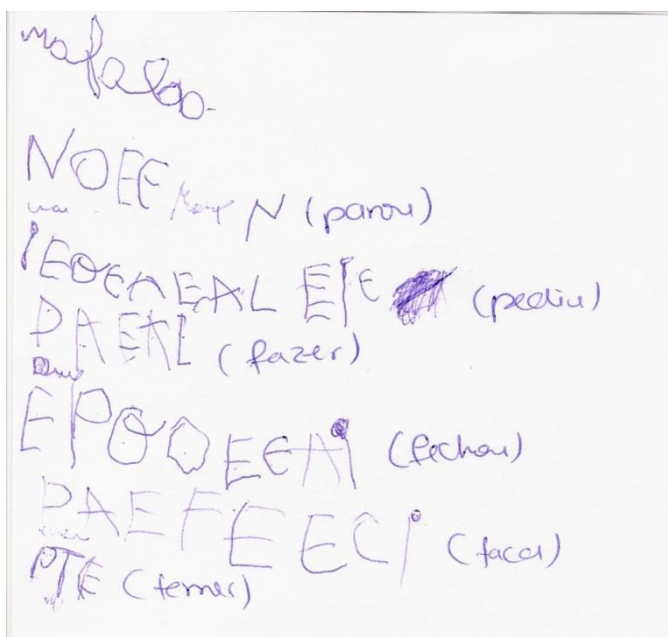 mafalda
NOEE N (parou)
IEOEAEAL EIE (pediu)
PAEAL (fazer)
EPOOEEAi (fechou)
PAEFEECi
PTE